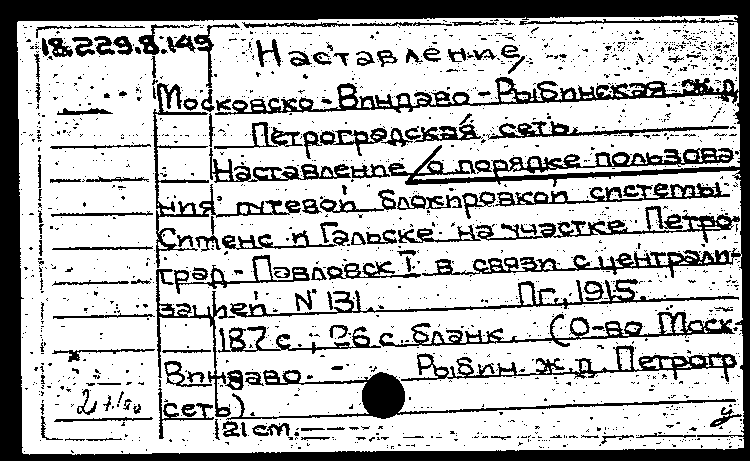 18.229.8.149
Наставление
Московско-Виндаво-Рыбинская ж.д.
Петроградская сеть.
Наставление о порядке пользова-
ния путевой блокировкой системы
Сименс и Гальске на участке Петро-
град-Павловск I в связи с централи-
зацией. № 131. Пг., 1915.
187 с.; 26 с. бланк. (О-во Моск-
Виндаво. - Рыбин. ж.д. Петрогр.
сеть).
21 cm.